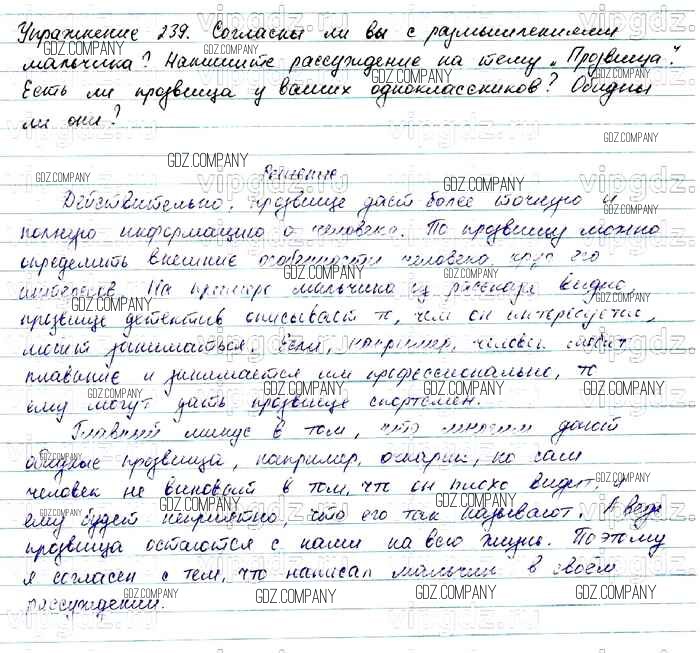 Упражнение 239. Согласны ли вы с размышлениями
мальчика? Напишите рассуждение на тему „Прозвища“.
Есть ли прозвища у ваших одноклассников? Обидны
ли они?
Решение
Действительно, прозвище даёт более точную и
полную информацию о человеке. По прозвищу можно
определить внешние особенности человека, круг его
интересов. На примере мальчика из рассказа видно,
прозвище детектив описывает то, чем он интересуется,
может заниматься. Если, например, человек любит
плавание и занимается им профессионально, то
ему могут дать прозвище спортсмен.
Главный минус в том, что многим дают
обидные прозвища, например, очкарик, но сам
человек не виноват в том, что он плохо видит, и
ему будет неприятно, что его так называют. А ведь
прозвища остаются с нами на всю жизнь. Поэтому
я согласен с тем, что написал мальчик в своём
рассуждении.
GDZ.COMPANY
vipgdz.ru